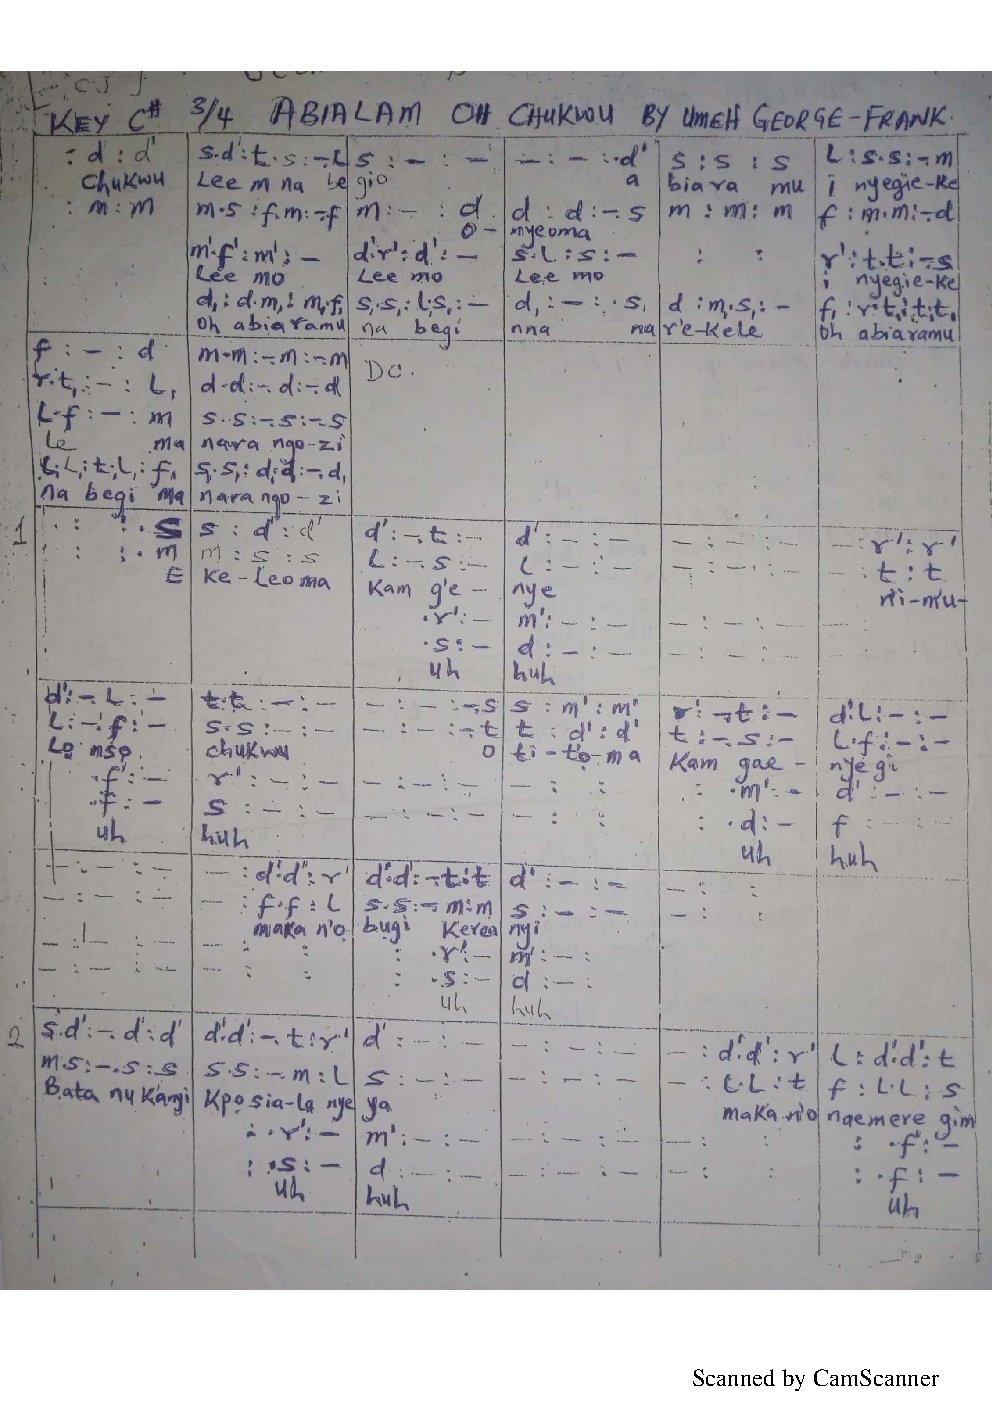 KEY C# 3/4 ABIALAM OH CHUKWU BY UMEH GEORGE-FRANK.
: d : d' s.d':t.s:-.L s : - : - - : - :.d' s : s : s L : s.s:-.m
Chukwu Lee m na be gio a biara mu i nyegie-ke
: m : m m.s : f.m:-f m : - : d d : d :- s m : m : m f : m.m:-.d
O- nyeoma
m'.f':m':- d'.r':d':- s.L:s:- : : r':t.t:-.s
Lee mo Lee mo Lee mo i nyegie-ke
d,:d.m,:m,f, s,.s,:l,s,:- d,:-:.s, d:m.s,:- f,:r.t,:t,:t,
Oh abiaramu na begi nna na re-kele oh abiaramu
f : - : d m.m:-.m:-.m DC.
r.t,:-: L, d.d:-.d:-.d
L.f:-: m s.s:-.s:-.s
le ma nara ngo-zi
L,.L,:t,.L,:f, s,.s,:d,.d,:-.d,
na begi ma nara ngo-zi
1 : : . s s : d' : d' d':-.t:- d':-:- -:-:- -:r':r'
: : . m m : s : s L:-.s:- L:-:- -:-:- -:t:t
E Ke-leoma Kam ge- nye ni-mu-
.r':- m':-:- -:-:-
.s:- d:-:- -:-:-
uh huh
d':-.L:- t.t:-:- -:-:-.s s : m' : m' r':-.t:- d'.L:-:-
L:-.f:- s.s:-:- -:-:-.t t : d' : d' t:-.s:- L.f:-:-
Lo nso chukwu O ti-to-ma Kam gae- nye gi
.f':- r':-:- -:-:- -: : : .m':- d':-:-
.f:- s:-:- -:-:- -: : : .d:- f
uh huh uh huh
-:-:- -:d'.d':r' d'.d':-.t:t d':-:- -: :
-:-:- -:f.f:L s.s:-.m:m s:-:- -: :
maka n'o bugi kerea nyi
-:-:- -: : : .r':- m':-:
-:-:- -: : : .s:- d:-:
uh huh
2 s.d':-.d':d' d'.d':-.t:r' d':-:- -:-:- -:d'.d':r' L:d'.d':t
m.s:-.s:s s.s:-.m:L s:-:- -:-:- -:t.L:t f:L.L:s
Bata nu kanyi Kpo sia-la nye ya maka no naemere gim
: .r':- m':-:- -:-:- -: : : .f':-
: .s:- d:-:- -:-:- -: : : .f:-
uh huh uh
Scanned by CamScanner